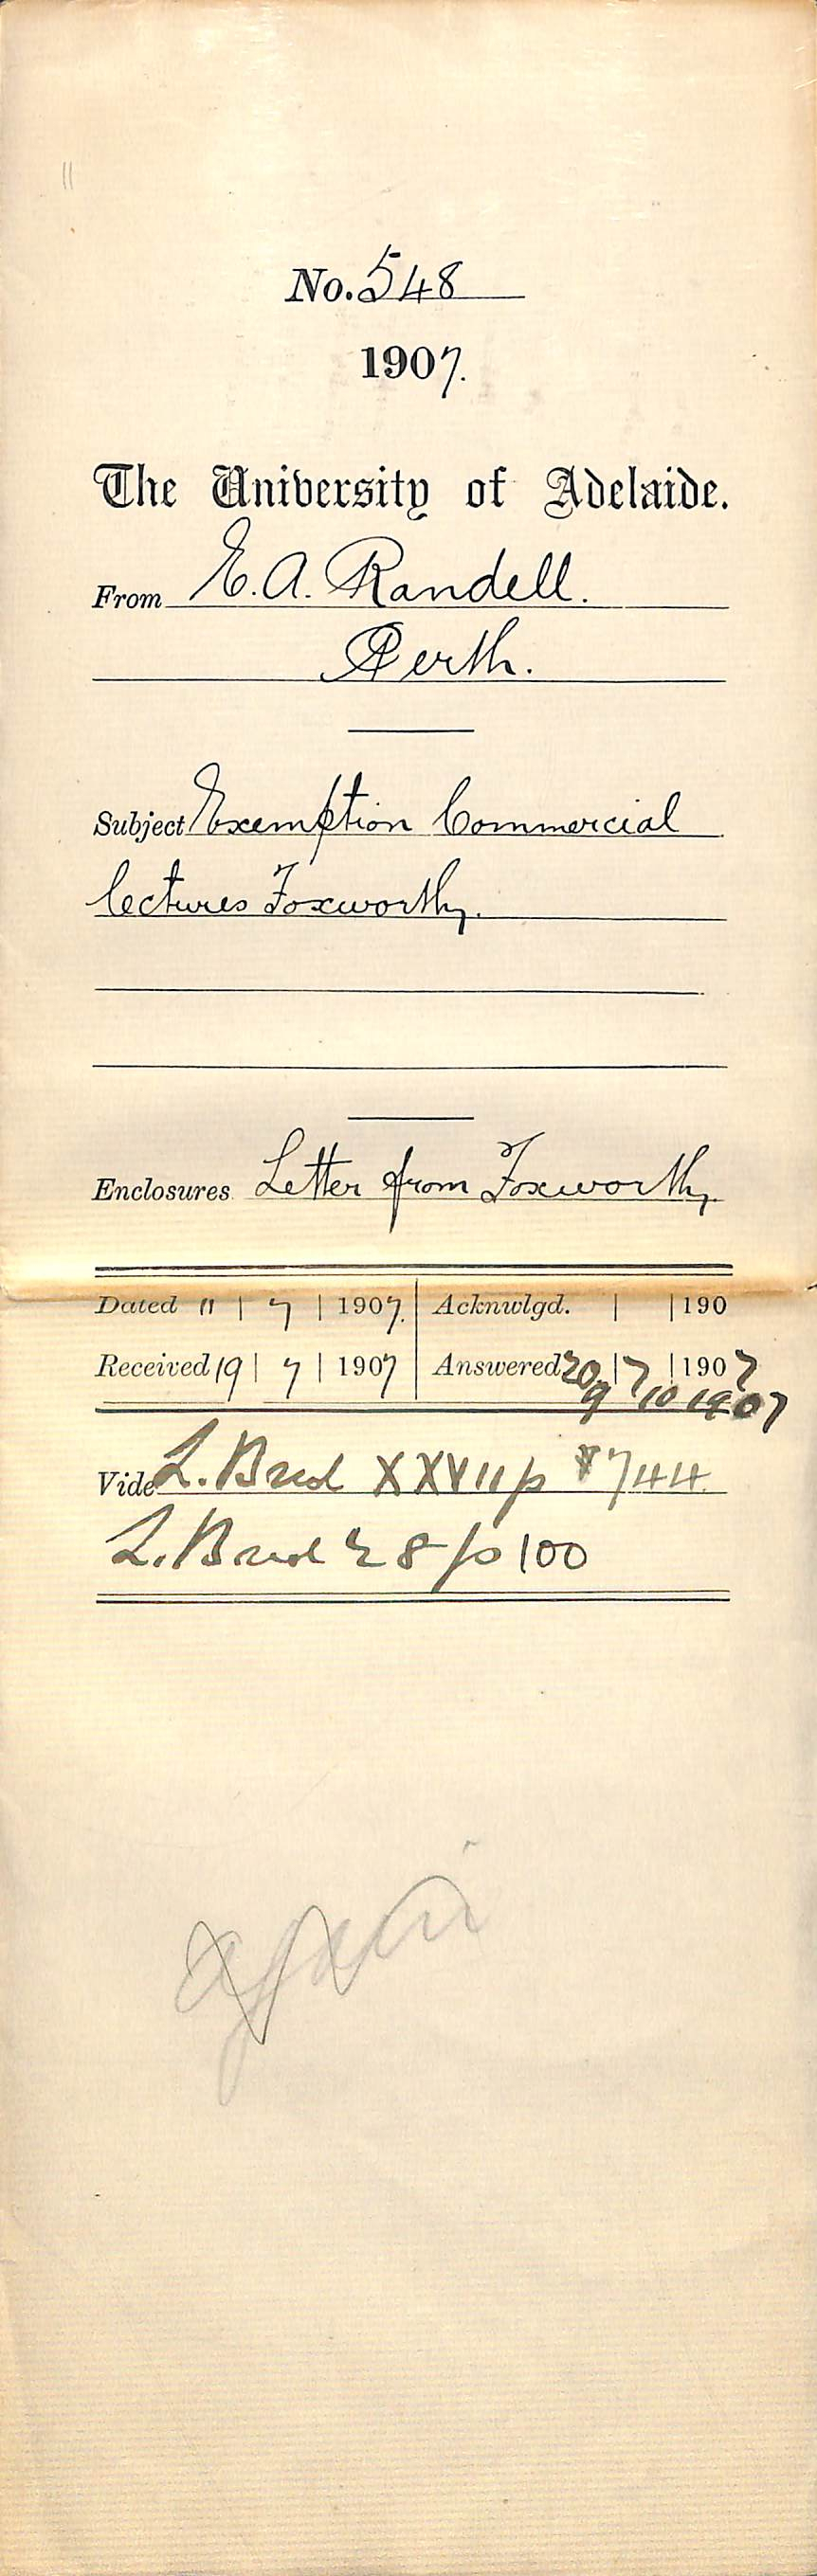 No. 548
1907.
The University of Adelaide.
From E. A. Randell.
Perth.
Subject Exemption Commercial
lectures Foxworthy.
Enclosures Letter from Foxworthy
Dated 11 | 7 | 1907. Acknwlgd. | | 190
Received 19 | 7 | 1907 Answered 20 | 7 | 1907
9 10 1907
Vide L. XXVII p 744
L. 28 p 100